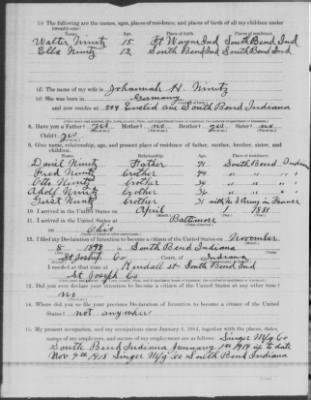 (c) The following are the names, ages, places of residence, and places of birth of all my children under
Name. Age. Place of birth. Place of residence.
Walter Nimtz 15 Ft Wayne Ind South Bend Ind
Ella Nimtz 12 South Bend Ind South Bend Ind
(d) The name of my wife is Johannah H. Nimtz
(e) She was born in Germany
and now resides at Euclid Ave South Bend Indiana
8. Have you a Father? yes Mother? no Brother? yes Sister? no
Child? yes
9. Give name, relationship, age, and present place of residence of father, mother, brother, sister, and
children.
Name. Relationship. Age. Place of residence.
Daniel Nimtz Father 71 South Bend Indiana
Fred Nimtz brother
Otto Nimtz brother
Adolf Nimtz brother
Gust Nimtz brother 31 with U.S Army in France
10. I arrived in the United States in April 1881
11. I arrived in the United States at Baltimore
on Ohio
12. I filed my Declaration of Intention to become a citizen of the United States on November
8 South Bend Indiana
St Joseph Co Court, of Indiana
I resided at that time at Kendall St South Bend Ind
St Joseph Co
13. Did you ever declare your intention to become a citizen of the United States at any other time?
no
14. Where did you so file your previous Declaration of Intention to become a citizen of the United
States? not any where
15. My present occupation, and my occupations since January 1, 1914, together with the places, dates,
names of my employer, and nature of my employment are as follows: Singer Mfg Co
South Bend Indiana January 1st 1914 up to date
Nov 9th 1918 Singer Mfg Co South Bend Indiana